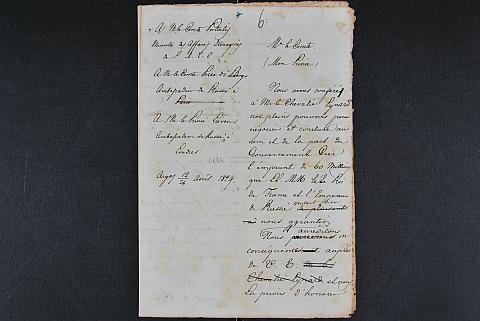 6
A M. le Comte Portalis
Ministre des Affaires Etrangères
de S. M. T. C.
A M. le Comte Pozzo di Borgo
Ambassadeur de Russie à
Paris
A M. le Prince Lieven
Ambassadeur de Russie à
Londres
Argos 14/26 Avril 1829.
Mr le Comte
(Mon Prince)
Nous avons conféré
à Mr le Chevalier Eynard
nos pleins pouvoirs pour
négocier et conclure au
nom et de la part du
Gouvernement Grec
l'emprunt de 60 Millions
que LL. MM. le Roi
de France et l'Empereur
de Russie
nous garantir
Nous accréditons
en
conséquence auprès
de V. E. M. le
Chevalier Eynard et nous
La prions d'honorer